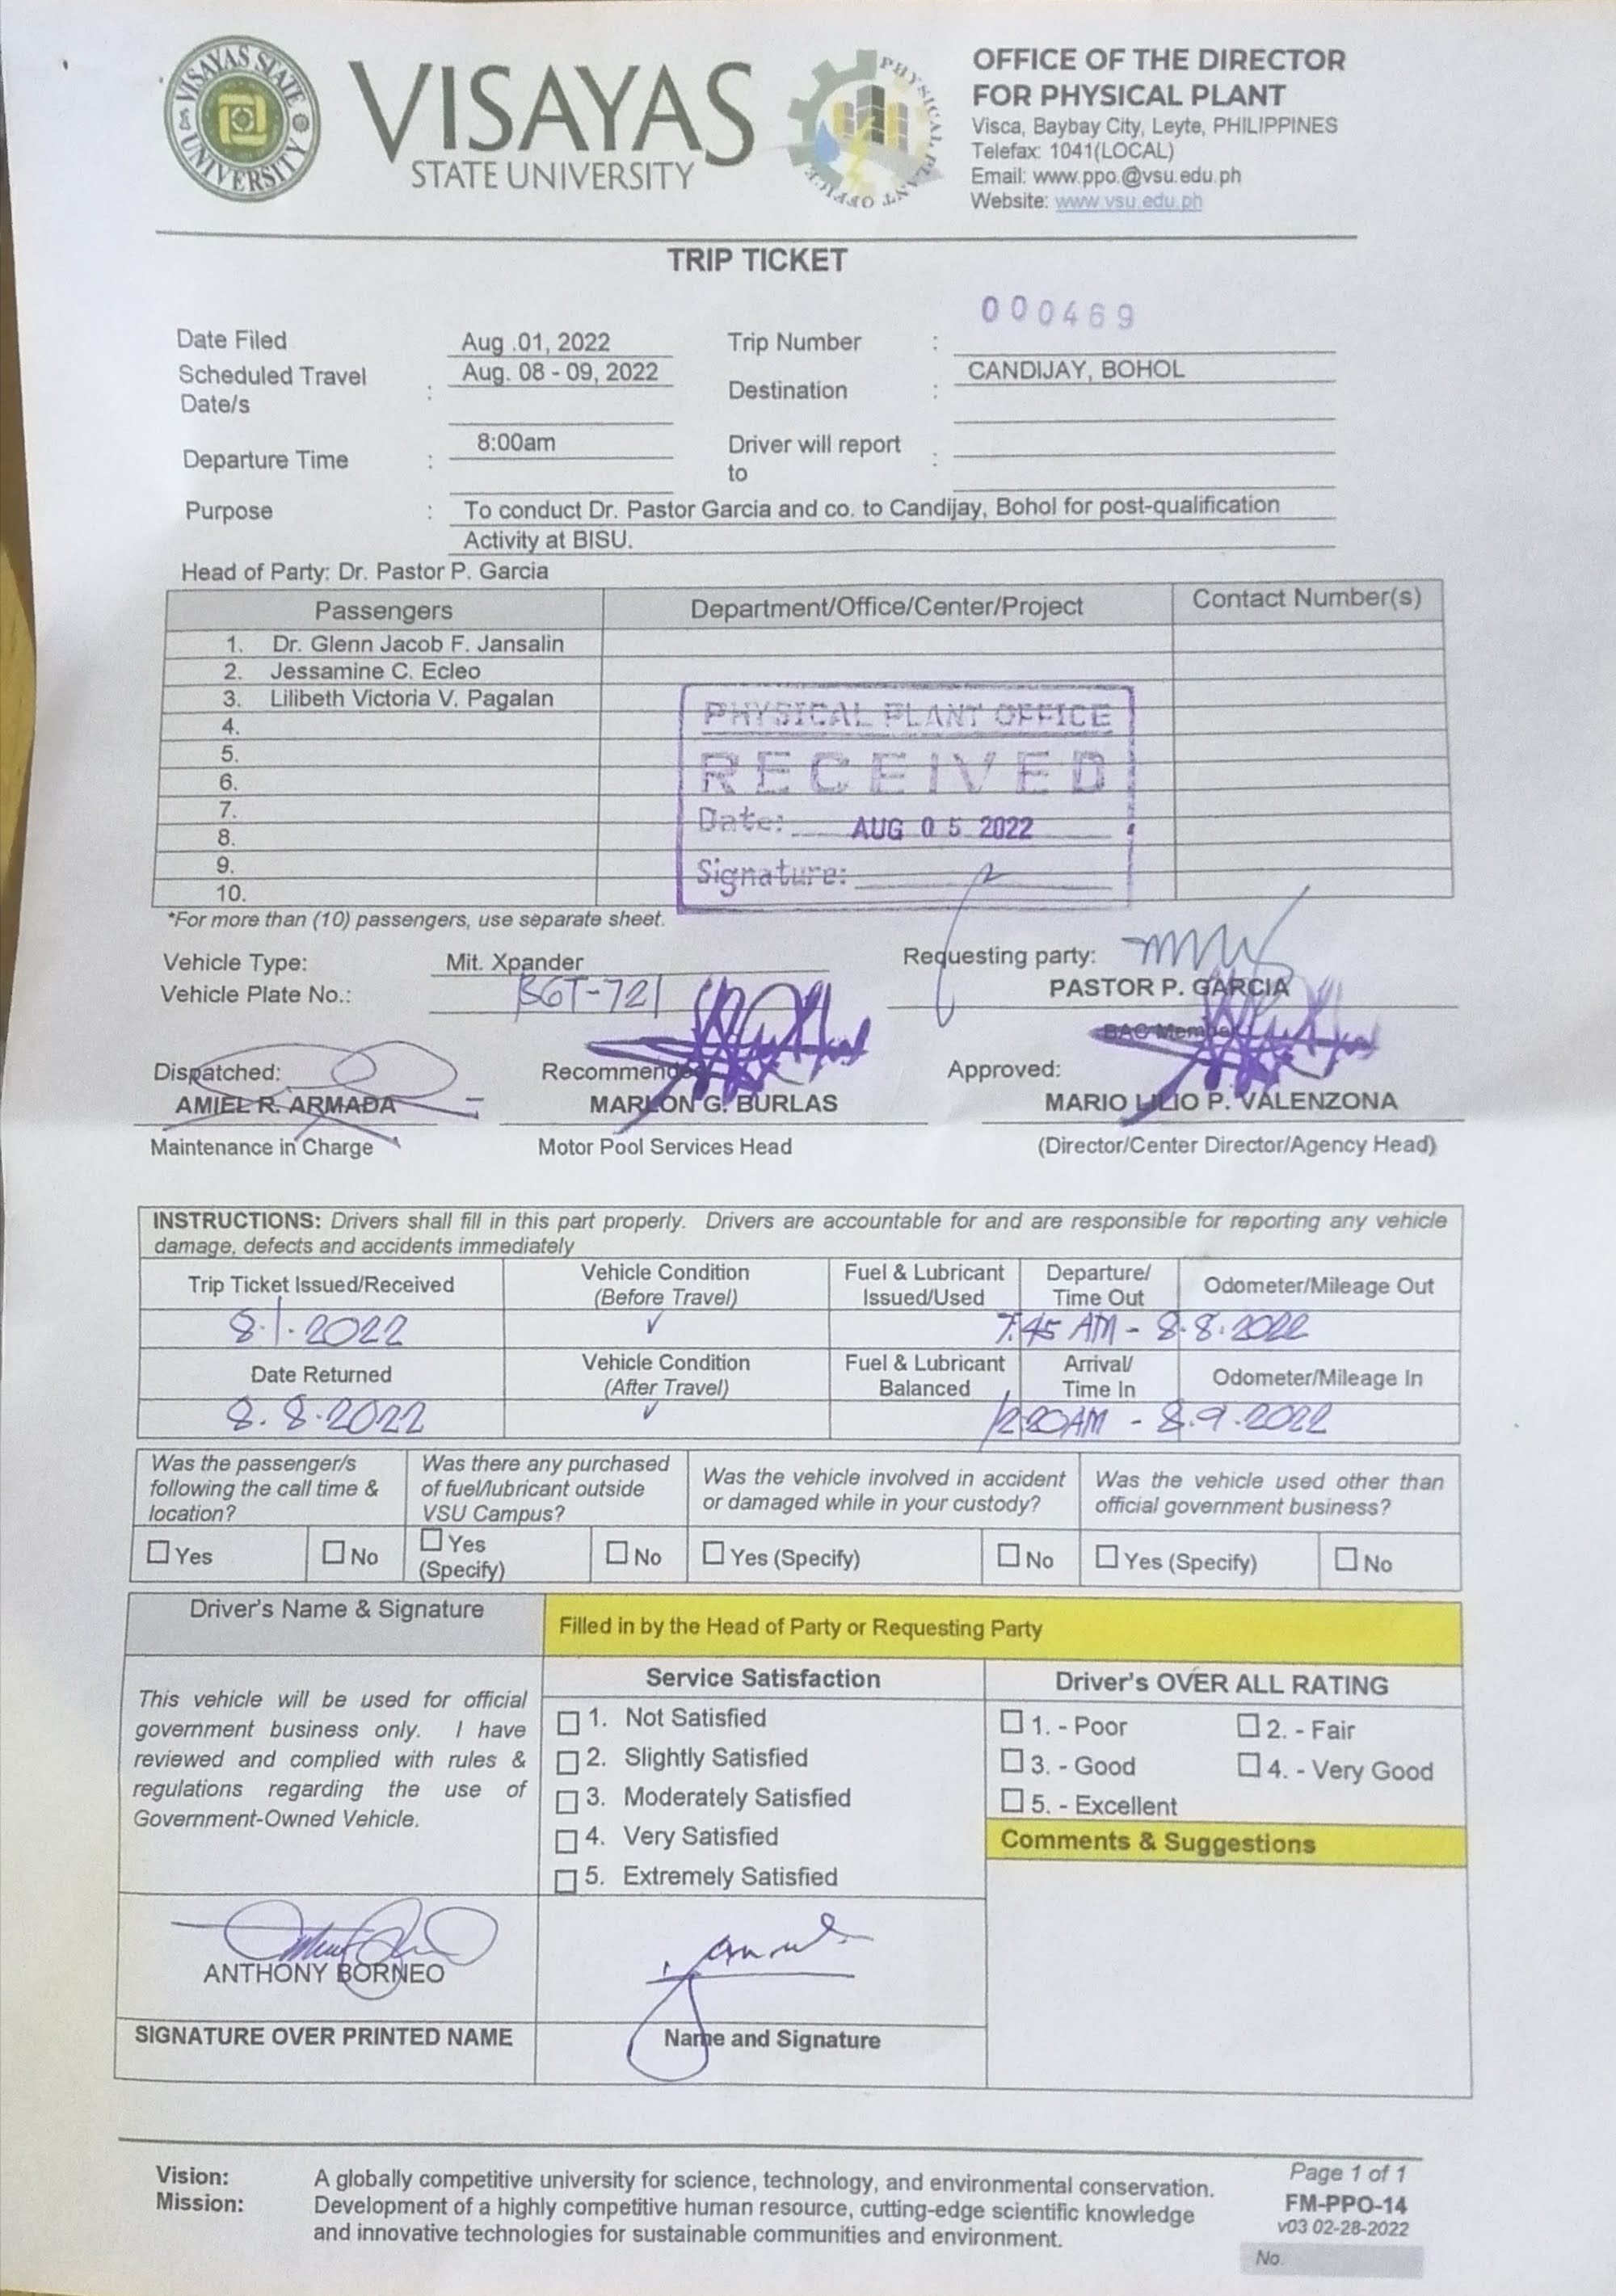 VISAYAS STATE UNIVERSITY
VISAYAS
STATE UNIVERSITY
PHYSICAL PLANT OFFICE
OFFICE OF THE DIRECTOR
FOR PHYSICAL PLANT
Visca, Baybay City, Leyte, PHILIPPINES
Telefax: 1041(LOCAL)
Email: www.ppo.@vsu.edu.ph
Website: www.vsu.edu.ph
TRIP TICKET
000469
Date Filed Aug .01, 2022 Trip Number :
Scheduled Travel Date/s : Aug. 08 - 09, 2022 Destination : CANDIJAY, BOHOL
Departure Time : 8:00am Driver will report to :
Purpose : To conduct Dr. Pastor Garcia and co. to Candijay, Bohol for post-qualification
Activity at BISU.
Head of Party: Dr. Pastor P. Garcia
Passengers Department/Office/Center/Project Contact Number(s)
1. Dr. Glenn Jacob F. Jansalin
2. Jessamine C. Ecleo
3. Lilibeth Victoria V. Pagalan
4.
5.
6.
7.
8.
9.
10.
PHYSICAL PLANT OFFICE
RECEIVED
Date: AUG 05 2022
Signature:
*For more than (10) passengers, use separate sheet.
Vehicle Type: Mit. Xpander Requesting party:
Vehicle Plate No.: BGT-721 PASTOR P. GARCIA
BAC Member
Dispatched: Recommended Approved:
AMIEL R. ARMADA MARLON G. BURLAS MARIO LILIO P. VALENZONA
Maintenance in Charge Motor Pool Services Head (Director/Center Director/Agency Head)
INSTRUCTIONS: Drivers shall fill in this part properly. Drivers are accountable for and are responsible for reporting any vehicle
damage, defects and accidents immediately
Trip Ticket Issued/Received Vehicle Condition (Before Travel) Fuel & Lubricant Issued/Used Departure/ Time Out Odometer/Mileage Out
8.1.2022 ✓ 7:45 AM - 8.8.2022
Date Returned Vehicle Condition (After Travel) Fuel & Lubricant Balanced Arrival/ Time In Odometer/Mileage In
8.8.2022 ✓ 12:20AM - 8.9.2022
Was the passenger/s following the call time & location? Was there any purchased of fuel/lubricant outside VSU Campus? Was the vehicle involved in accident or damaged while in your custody? Was the vehicle used other than official government business?
☐ Yes ☐ No ☐ Yes (Specify) ☐ No ☐ Yes (Specify) ☐ No ☐ Yes (Specify) ☐ No
Driver's Name & Signature Filled in by the Head of Party or Requesting Party
This vehicle will be used for official
government business only. I have
reviewed and complied with rules &
regulations regarding the use of
Government-Owned Vehicle.
Service Satisfaction
☐ 1. Not Satisfied
☐ 2. Slightly Satisfied
☐ 3. Moderately Satisfied
☐ 4. Very Satisfied
☐ 5. Extremely Satisfied
Driver's OVER ALL RATING
☐ 1. - Poor ☐ 2. - Fair
☐ 3. - Good ☐ 4. - Very Good
☐ 5. - Excellent
Comments & Suggestions
ANTHONY BORNEO
SIGNATURE OVER PRINTED NAME Name and Signature
Vision: A globally competitive university for science, technology, and environmental conservation.
Mission: Development of a highly competitive human resource, cutting-edge scientific knowledge
and innovative technologies for sustainable communities and environment.
Page 1 of 1
FM-PPO-14
v03 02-28-2022
No.